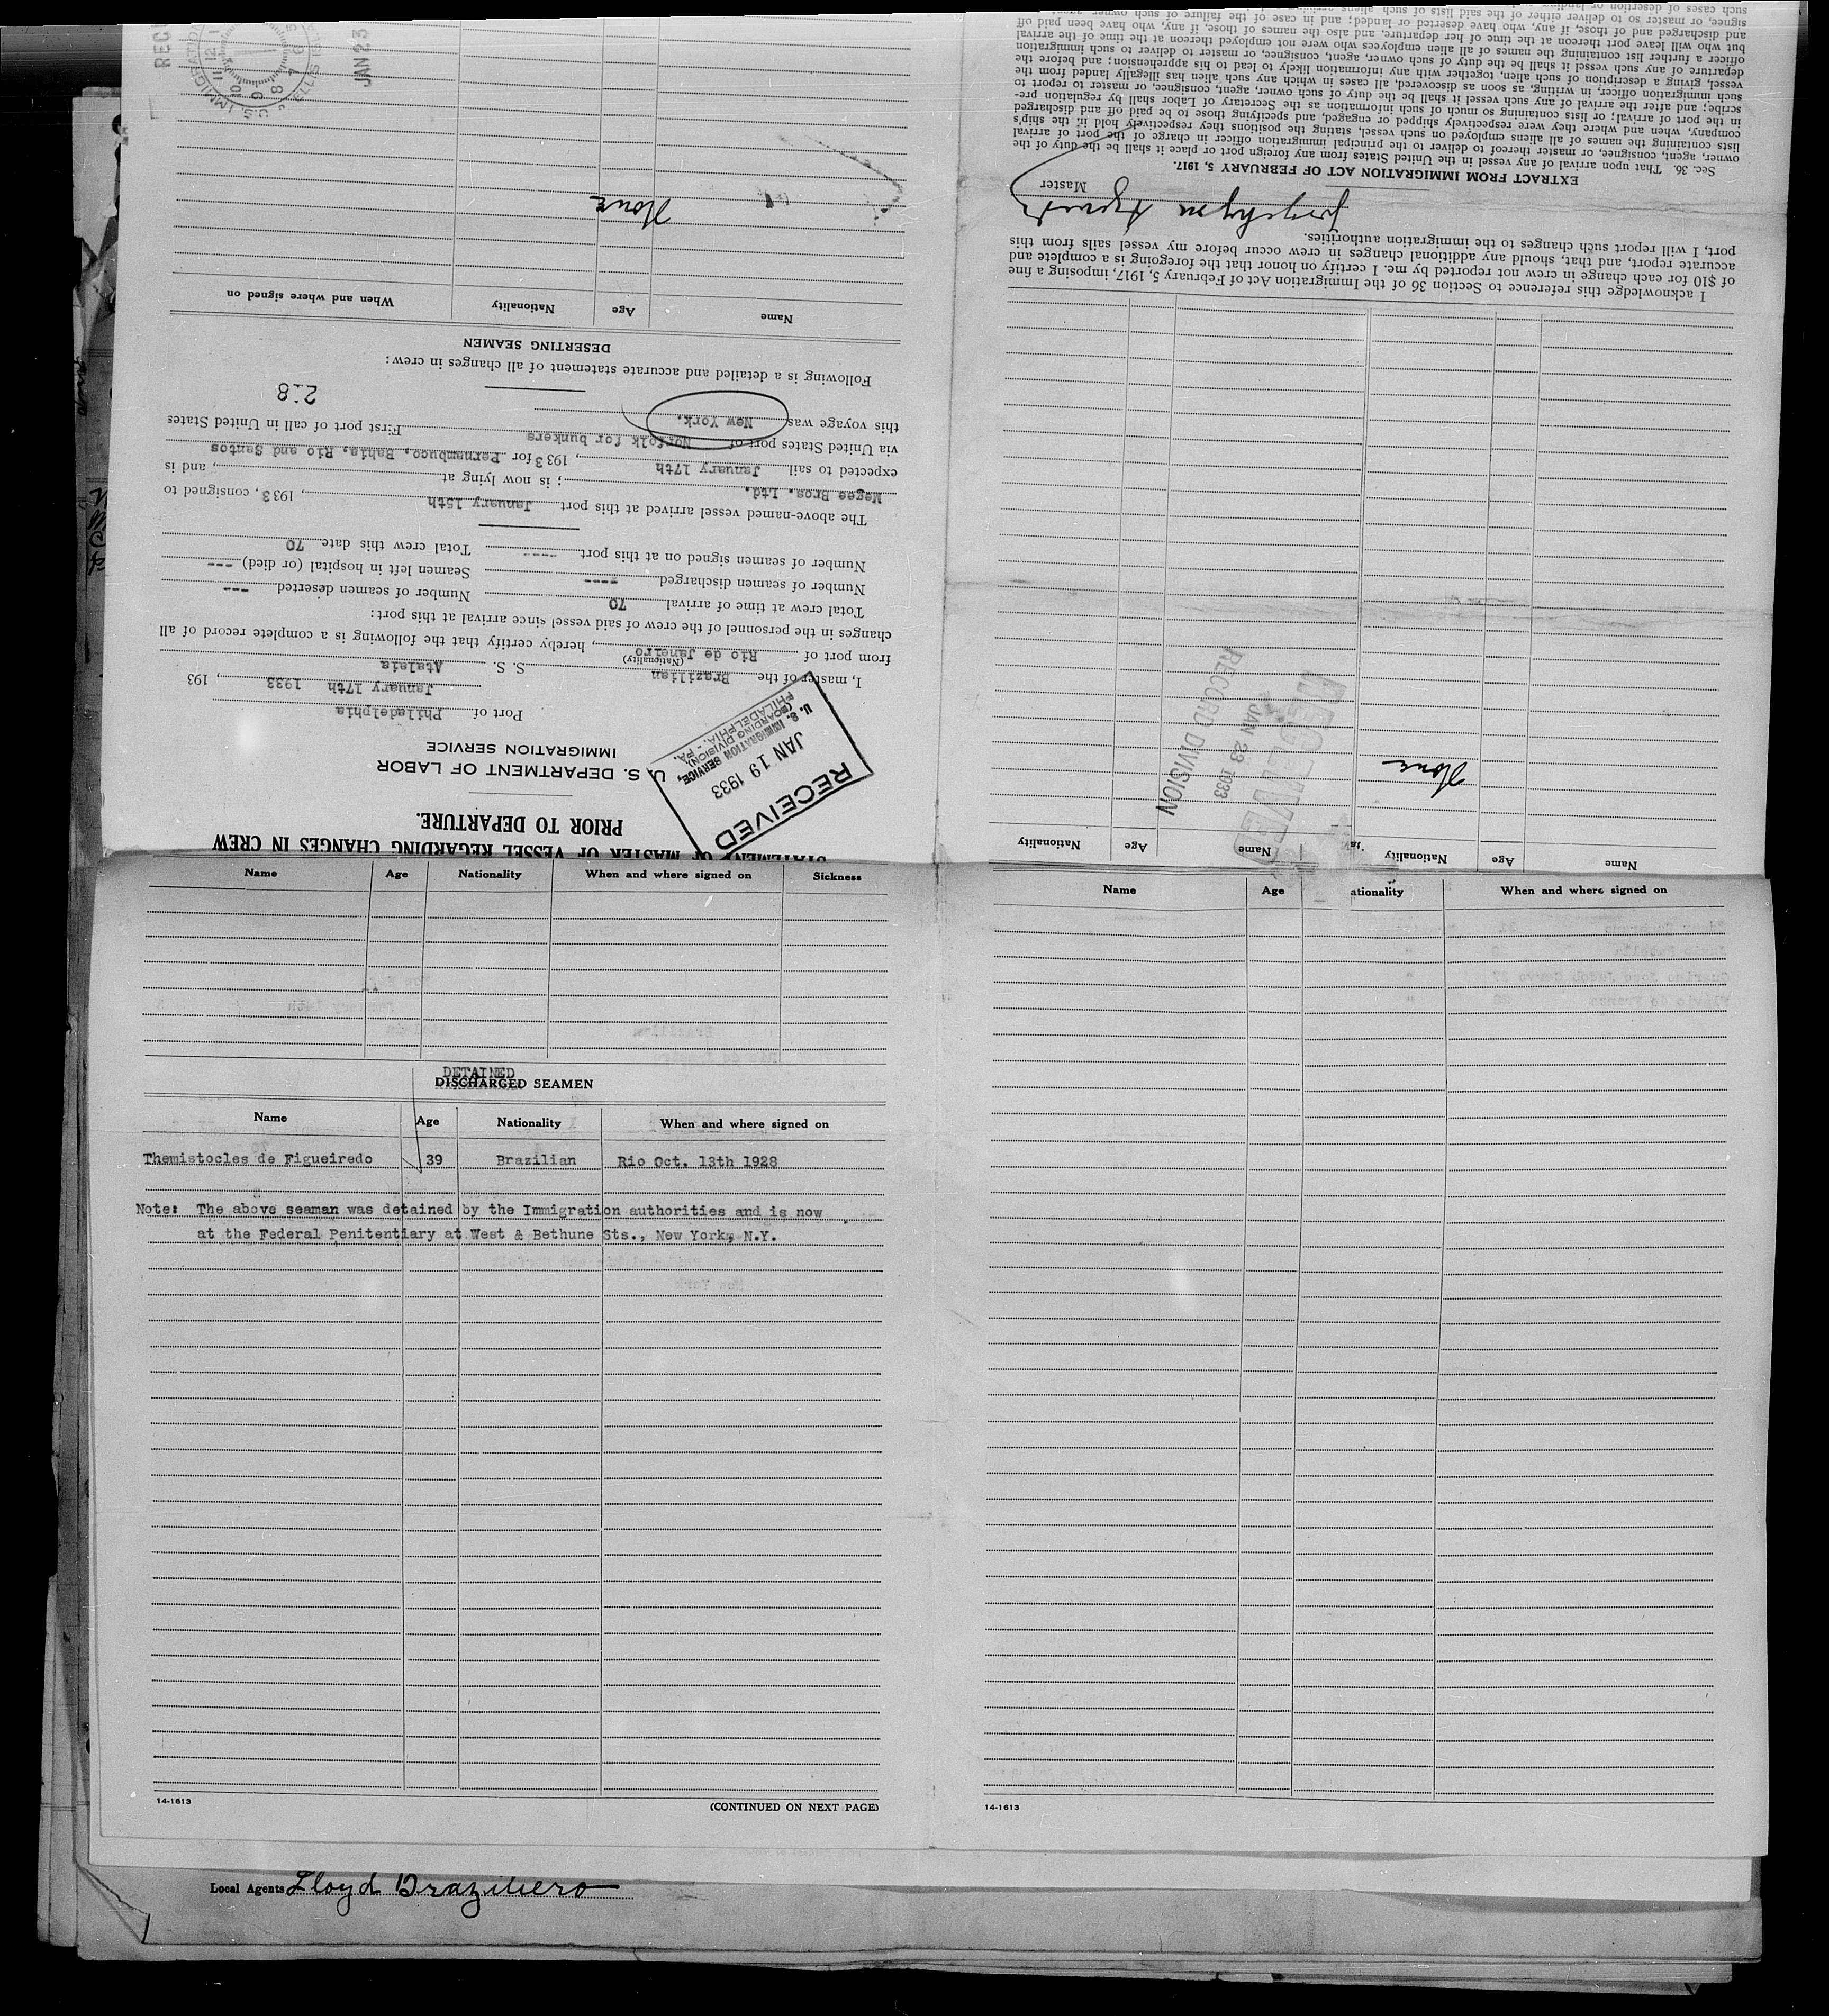 STATEMENT OF MASTER OF VESSEL REGARDING CHANGES IN CREW
PRIOR TO DEPARTURE.
U. S. DEPARTMENT OF LABOR
IMMIGRATION SERVICE
RECEIVED
JAN 19 1933
U. S. IMMIGRATION SERVICE,
(BOARDING DIVISION)
PHILADELPHIA, PA.
Port of Philadelphia
January 17th 1933, 193
I, master of the Brazilian S. S. Ataleia
(Nationality)
from port of Rio de Janeiro, hereby certify that the following is a complete record of all
changes in the personnel of the crew of said vessel since arrival at this port:
Total crew at time of arrival 70 Number of seamen deserted ---
Number of seamen discharged ---- Seamen left in hospital (or died) ---
Number of seamen signed on at this port ---- Total crew this date 70
The above-named vessel arrived at this port January 15th, 1933, consigned to
Wegee Bros. Ltd.; is now lying at, and is
expected to sail January 17th, 1933 for Pernambuco, Bahia, Rio and Santos
via United States port of Norfolk for bunkers First port of call in United States
this voyage was New York.
2:8
Following is a detailed and accurate statement of all changes in crew:
DESERTING SEAMEN
Name Age Nationality When and where signed on
None
JAN 23
Name Age Nationality Name Age Nationality
None
RECEIVED
JAN 23 1933
RECORD DIVISION
I acknowledge this reference to Section 36 of the Immigration Act of February 5, 1917, imposing a fine
of $10 for each change in crew not reported by me. I certify on honor that the foregoing is a complete and
accurate report, and that, should any additional changes in crew occur before my vessel sails from this
port, I will report such changes to the immigration authorities.
Master
EXTRACT FROM IMMIGRATION ACT OF FEBRUARY 5, 1917.
Sec. 36. That upon arrival of any vessel in the United States from any foreign port or place it shall be the duty of the
owner, agent, consignee, or master thereof to deliver to the principal immigration officer in charge of the port of arrival
lists containing the names of all aliens employed on such vessel, stating the positions they respectively hold in the ship's
company, when and where they were respectively shipped or engaged, and specifying those to be paid off and discharged
in the port of arrival; or lists containing so much of such information as the Secretary of Labor shall by regulation pre-
scribe; and after the arrival of any such vessel it shall be the duty of such owner, agent, consignee, or master to report to
such immigration officer, in writing, as soon as discovered, all cases in which any such alien has illegally landed from the
vessel, giving a description of such alien, together with any information likely to lead to his apprehension; and before the
departure of any such vessel it shall be the duty of such owner, agent, consignee, or master to deliver to such immigration
officer a further list containing the names of all alien employees who were not employed thereon at the time of the arrival
but who will leave port thereon at the time of her departure, and also the names of those, if any, who have been paid off
and discharged and of those, if any, who have deserted or landed; and in case of the failure of such owner, agent,
signee, or master so to deliver either of the said lists of such aliens
Name Age Nationality When and where signed on Sickness
DETAINED
DISCHARGED SEAMEN
Name Age Nationality When and where signed on
Themistocles de Figueiredo 39 Brazilian Rio Oct. 13th 1928
Note: The above seaman was detained by the Immigration authorities and is now
at the Federal Penitentiary at West & Bethune Sts., New York, N.Y.
14-1613 (CONTINUED ON NEXT PAGE)
Name Age ationality When and where signed on
14-1613
Local Agents Lloyd Braziliero